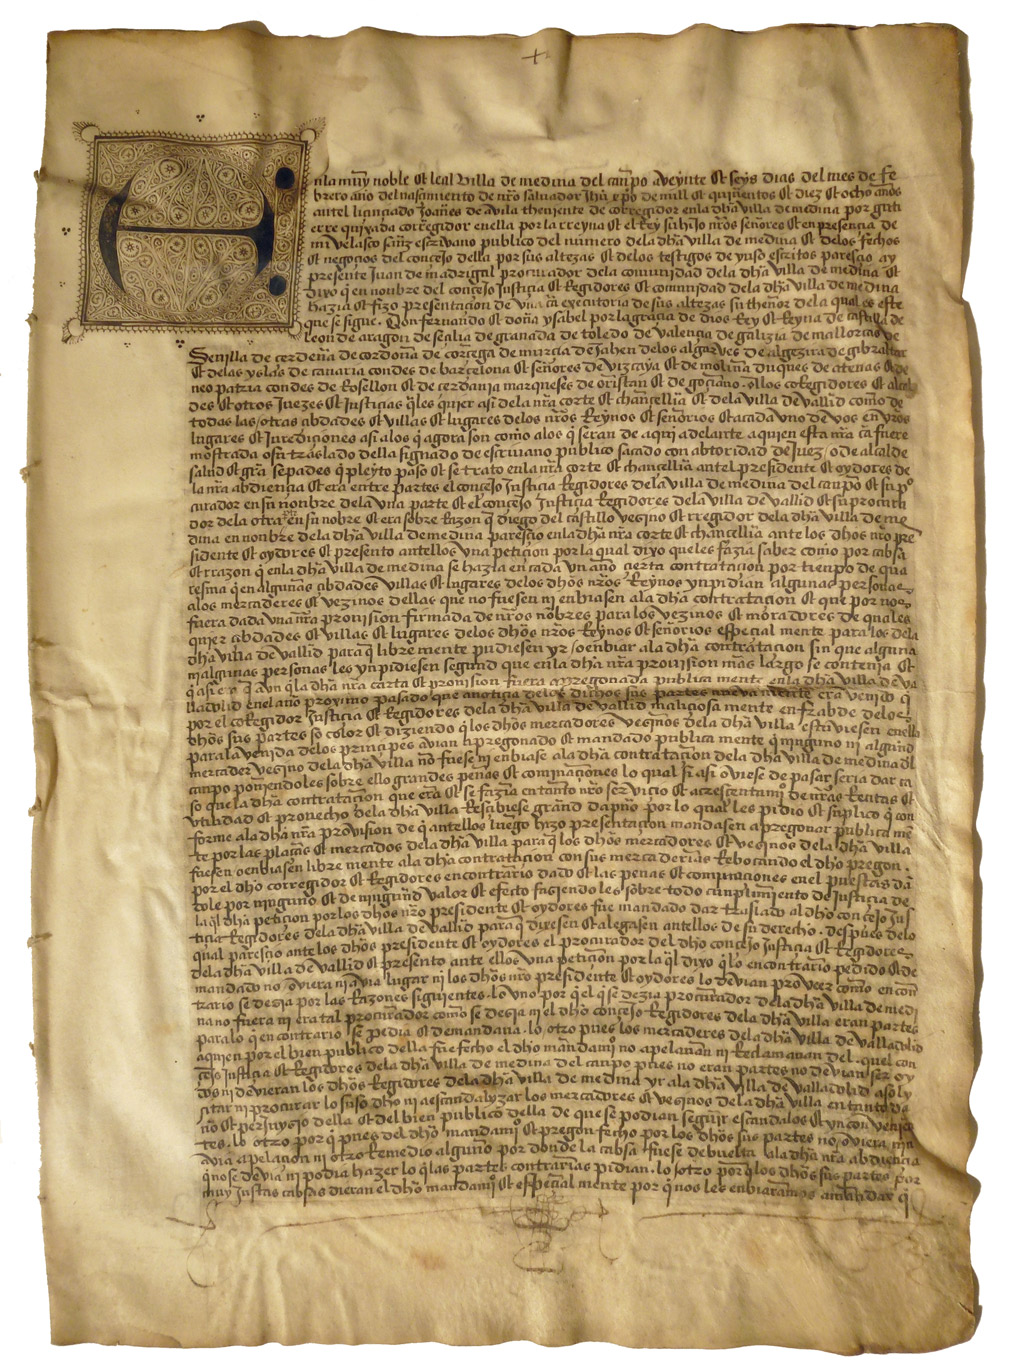 En la muy noble et leal villa de medina del canpo a veynte et seys dias del mes de fe
brero año del nasçimiento de nr̃o salvador ihũ xp̃o de mill et quiñentos et diez et ocho años
antel liçençiado Joañes de avila theniente de corregidor en la dha villa de medina por guti
erre quixada corregidor en ella por la rreyna et el Rey su hijo nr̃os señores et en presençia de
mi velasco escrivano publico del numero de la dha villa de medina et de los fechos
et negoçios del conçejo della por sus altezas et de los testigos de yuso escritos paresçio ay
presente Juan de madrigal procurador de la comunidad de la dha villa de medina et
dixo q̃ en nonbre del conçejo Justiçia et Regidores et comunidad de la dha villa de medina
hazia et fizo presentaçion de vna cr̃a executoria de sus altezas su thenor de la qual es este
que se sigue. Don fernando et doña ysabel por la graçia de dios Rey et Reyna de castilla de
leon de aragon de seçilia de granada de toledo de valençia de galizia de mallorcas de
Sevilla de cerdeña de cordova de corçega de murçia de Jahen de los algarves de algezira de gibraltar
et de las yslas de canaria condes de barçelona et señores de vizcaya et de molina duques de atenas et de
neopatria condes de Rosellon et de çerdania marqueses de oristan et de goçiano. a los coRegidores et alcal
des et otros Juezes et Justiçias q̃les quier asi de la nr̃a corte et chançelleria et de la villa de vallid como de
todas las otras çibdades et villas et lugares de los nr̃os Reynos et señorios et a cada vno de vos en vr̃os
lugares et Juridiçiones asi a los q̃ agora son como a los q̃ seran de aqui adelante a quien esta nr̃a cr̃a fuere
mostrada o su traslado della signado de escrivano publico sacado con abtoridad de Juez o de alcalde
salud et gr̃a sepades q̃ pleyto paso et se trato en la nr̃a corte et chançelleria antel presidente et oydores de
la nr̃a abdiençia et era entre partes el conçejo Justiçia Regidores de la villa de medina del canpo et su p̃
curador en su nonbre de la vna parte et el conçejo Justiçia Regidores de la villa de vallid et su procura
dor de la otra en su nonbre et era sobre Razon q̃ diego del castillo vezino et rregidor de la dha villa de me
dina en nonbre de la dha villa de medina paresçio en la dha nr̃a corte et chançelleria ante los dhos nr̃o pre
sidente et oydores et presento antellos vna petiçion por la qual dixo que les fazia saber como por cabsa
et rrazon q̃ en la dha villa de medina se hazia en cada vn año çierta contrataçion por tienpo de qua
resma q̃ en algunas çibdades villas et lugares de los dhos nr̃os Reynos ynpidian algunas personas
a los mercaderes et vezinos dellas que no fuesen ni enbiasen a la dha contrataçion et que por nos
fuera dada vna nr̃a provision firmada de nr̃os nonbres para los vezinos et moradores de quales
quier çibdades et villas et lugares de los dhos nr̃os Reynos et señorios espeçial mente para los de la
dha villa de vallid para q̃ libre mente pudiesen yr o enbiar a la dha contrataçion sin que alguna
ni algunas personas les ynpidiesen segund que en la dha nr̃a provision mas largo se contenia et
q̃ asi era q̃ avn q̃ la dha nr̃a carta et provision fuera apregonada publica mente en la dha villa de va
lladolid en el año proximo pasado que a notiçia de los dichos sus partes nueva mente era venido q̃
por el coRegidor Justiçia et Regidores de la dha villa de vallid maliçiosa mente en frabde de los
dhos sus partes so color et diziendo q̃ los dhos mercadores vezinos de la dha villa estuviesen en ella
para la venida de los prinçipes avian apregonado et mandado publica mente q̃ ninguno ni algund
mercader vezino de la dha villa no fuese ni enbiase a la dha contrataçion de la dha villa de medina del
canpo poniendoles sobre ello grandes penas et cominaçiones lo qual si asi oviese de pasar seria dar ca
so que la dha contrataçion que era et se fazia en tanto nr̃o serviçio et acresçentamiº de nr̃as Rentas et
vtilidad et provecho de la dha villa Resçibiese grand dapño por lo qual les pidio et suplico q̃ con
forme a la dha nr̃a provision de q̃ antellos luego hizo presentaçion mandasen apregonar publica me
te por las plaças et mercados de la dha villa para q̃ los dhos mercadores et vezinos de la dha villa
fuesen o enbiasen libre mente a la dha contrataçion con sus mercaderias Rebocando el dho pregon.
por el dho corregidor et Regidores en contrario dado et las penas et cominaçiones en el puestas dan
dole por ninguno et de ningund valor et efecto faziendo les sobre todo cunplimiento de Justiçia de
la q̃l dha petiçion por los dhos nr̃o presidente et oydores fue mandado dar traslado al dho conçejo Jus
tiçia Regidores de la dha villa de vallid para q̃ dixesen et alegasen antellos de su derecho. despues de lo
qual paresçio ante los dhos presidente et oydores el procurador del dho conçejo Justiçia et Regidores
de la dha villa de vallid et presento ante ellos vna petiçion por la q̃l dixo q̃ lo en contrario pedido et de
mandado no oviera ni avia lugar ni los dhos nr̃o presidente et oydores lo devian proveer como en con
trario se dezia por las Razones siguientes. lo vno por q̃ el q̃ se dezia procurador de la dha villa de medi
na no fuera ni era tal procurador como se dezia ni el dho conçejo Regidores de la dha villa eran partes
para lo q̃ en contrario se pedia et demandava. lo otro pues los mercaderes de la dha villa de valladolid
a quien por el bien publico della fue fecho el dho mandamiº no apelavan ni Reclamavan del. quel con
çejo Justiçia et Regidores de la dha villa de medina del canpo pues no eran partes no devian ser oy
dos ni devieran los dhos Regidores de la dha villa de medina yr a la dha villa de valladolid a soly
çitar ni procurar lo suso dho ni a escandalyzar los mercadores et vezinos de la dha villa en tanto da
ño et perjuyzio della et del bien publico della de que se podian seguir escandalos et ynconvenien
tes. lo otro por q̃ pues del dho mandamiº et pregon fecho por los dhos sus partes no oviera nin
avia apelaçion ni otro Remedio alguno por donde la cabsa fuese debuelta a la dha nr̃a abdiençia
q̃ no se devia ni podia hazer lo q̃ las partes contrarias pidian. lo otro por q̃ los dhos sus partes por
muy Justas cabsas dieran el dho mandamiº et espeçial mente por q̃ nos les enbiaramos a mandar q̃